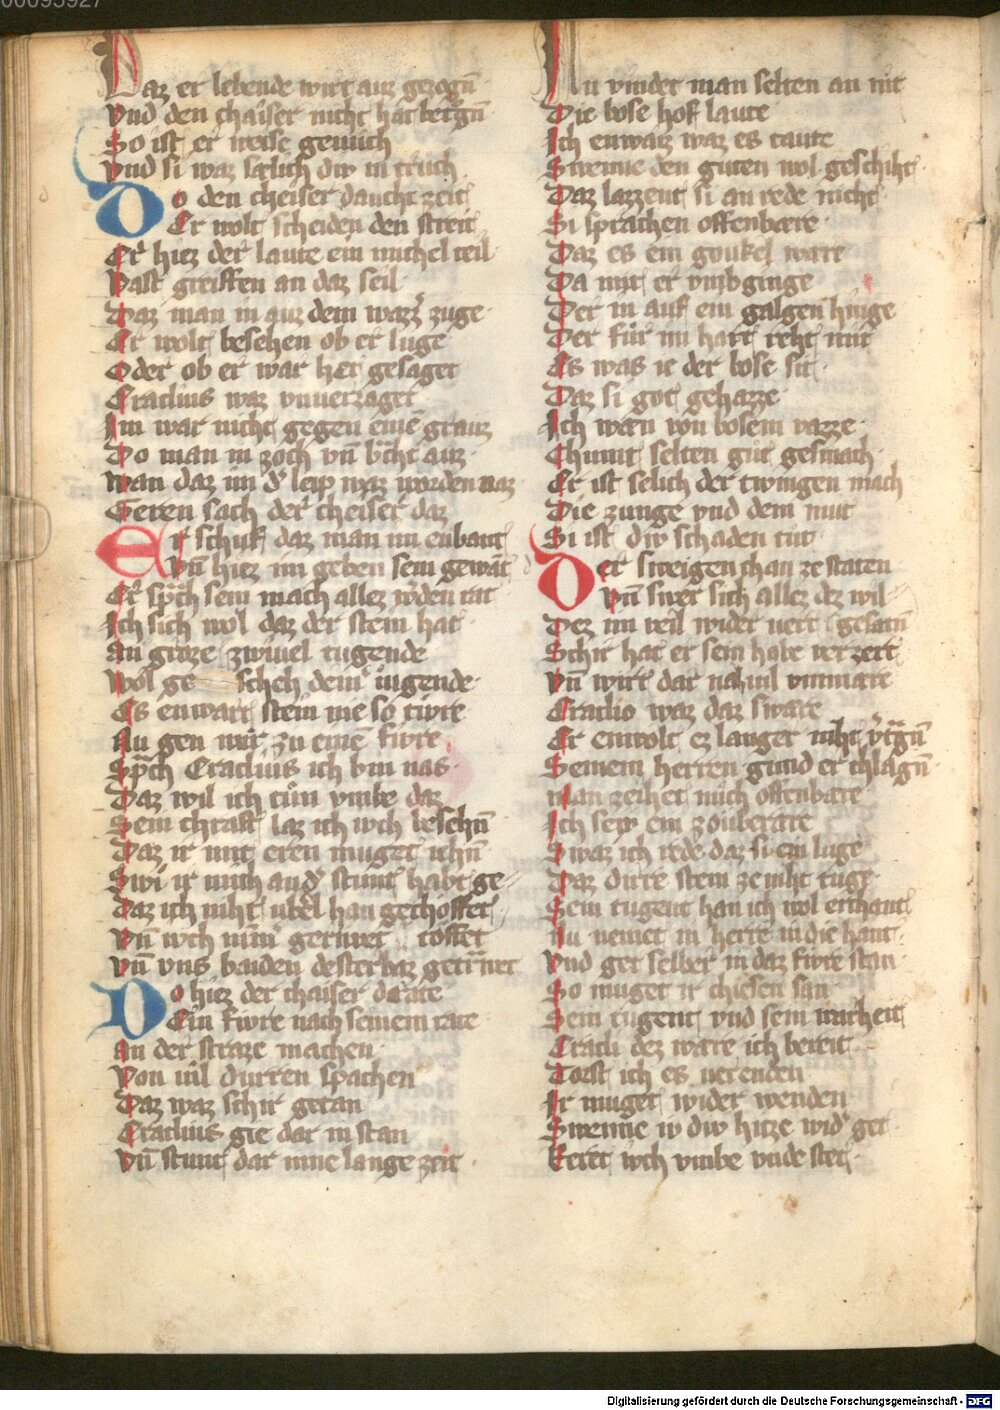 00095927
Daz er lebende wirt auz gezogn̄
Vnd den chaiser nicht hat betrogn̄
So ist er weise genuch
Vnd si waz sælich div in truch
Do den cheiser daucht zeit
Er wolt scheiden den streit
Er hiez der laute ein michel teil
Vast greiffen an daz seil
Daz man in auz dem wazz̉ zuge
Er wolt besehen ob er luge
Oder ob er war het gesaget
Eraclius waz vnuerzaget
Im war nicht gegen eine grauz
Do man in zoch vn̄ bͣcht auz
Wan daz im d̉ leip waz worden naz
Gerren sach der cheiser daz
Er schuf daz man im enbant
Vn̄ hiez im geben sein gewāt
Er sp̄ch sein mach allez w̉den rat
Ich sich wol daz der stein hat
An groze zwiuel tugende
Wol ge scheh dem iugende
Es enwart stein nie so tivre
Nu gen wir zu eine fivre
Sp̄ch Eraclius ich bin nas
Daz wil ich tun vmbe daz
Sein chraft laz ich ivch besehn̄
Daz ir mit eren muget iehn̄
Swi ir mich and̉ stunt habt ge
Daz ich niht vbel han gechoffet
Vn̄ ivch min̄ gerivet toffet
Vn̄ vns baiden dester baz getrwet
Do hiez der chaiser drate
Ein fivre nach seinem rate
An der straze machen
Von vil durren spachen
Daz waz schir getan
Eraclius gie dar in stan
Vn̄ stunt dar inne lange zeit
Nu vindet man selten an nit
Die bose hof laute
Ich enwaiz waz es taute
Swenne den guten wol geschiht
Daz lazzent si an rede nicht
Si sprachen offenbare
Daz es ein goukel ware
Da mit er vmbginge
Der in auf ein galgen hinge
Der fur im hart reht mit
Es was ie der bose sit
Daz si got gehazze
Ich wæn von bosem vazze
Chumt selten gut gesmach
Er ist selich der twingen mach
Die zunge vnd dem mut
Si ist div schaden tut
Der sweigen chan ze staten
Vn̄ swer sich allez dez wil
Dez im veil wider vert gesatn̄
Schir hat er sein habe verzert
Vn̄ wirt dar nah vil vnmare
Eraclio waz daz sware
Er enwolt ez langer niht v̉tgn̄
Seinem herren gund er chlagn̄
Man zeihet mich offenbare
Ich sey ein zouberare
Swaz ich rede daz si ein luge
Daz dirre stein ze niht tuge
Sein tugent han ich wol erchant
Nu nemet in herre in die hant
Vnd get selber in daz fivre stan
So muget ir chiesen san
Sein tugent vnd sein warheit
Eracli dez ware ich bereit
Torst ich es nerenden
Ir muget wider wenden
Swenne iv div hitze wid̉ get
Keret ivch vmbe vnde stet
Digitalisierung gefördert durch die Deutsche Forschungsgemeinschaft - DFG